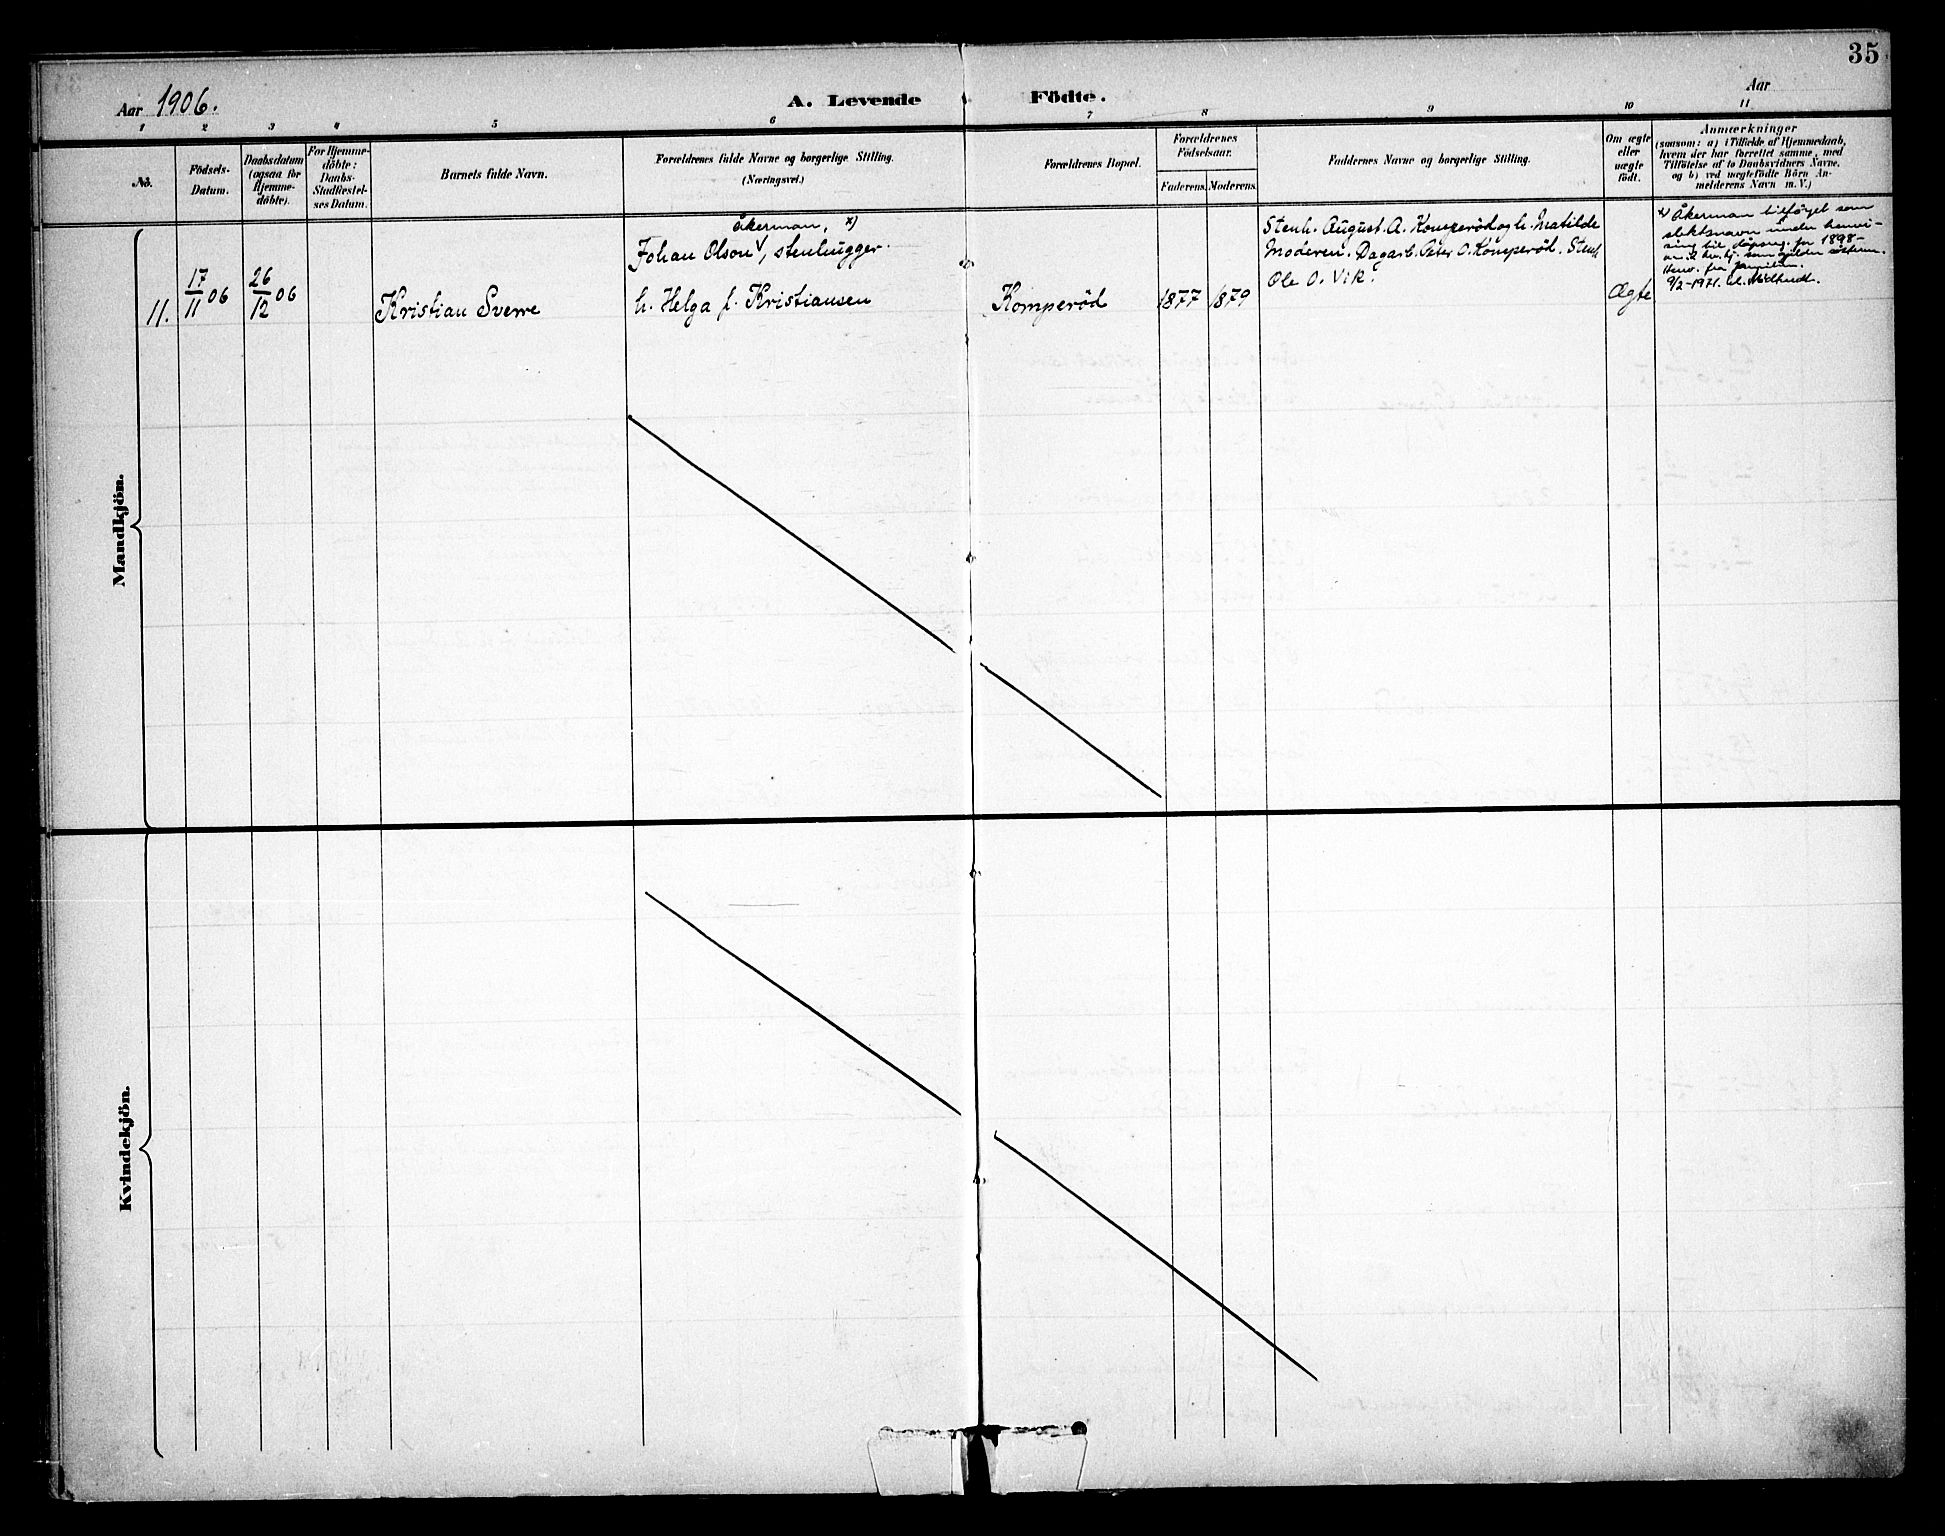 35
Aar 1906.
A. Levende Födte.
Aar
1 2 3 4 5 6 7 8 9 10 11
No.
Födsels-
Datum.
Daabsdatum
(ogsaa for
Hjemme-
döbte).
For Hjemme-
döbte:
Daabs-
Stadfæstel-
ses Datum.
Barnets fulde Navn.
Forældrenes fulde Navne og borgerlige Stilling.
(Næringsvei.)
Forældrenes Bopæl.
Forældrenes
Födselsaar.
Faderens. Moderens.
Faddernes Navne og borgerlige Stilling.
Om ægte
eller
uægte
födt.
Anmærkninger
(saasom: a) i Tilfælde af Hjemmedaab,
hvem der har forrettet samme, med
Tilföielse af to Daabsvidners Navne,
og b) ved uægtefödte Börn An-
melderens Navn m. V.)
Mandkjön.
11.
17/11 06
26/12 06
Kristian Sverre
Åkerman, x)
Johan Olson √, stenhugger
h. Helga f. Kristiansen
Komperöd
1877
1879
Stenh. August. A. Komperöd og h. Matilde
Moderen. Dagarb. Peter O. Komperöd. Stenh
Ole O. Vik.
Ægte
x) Åkerman tilføyet som
slektsnavn under henvi-
sning til døpeng. for 1898-
fra familien.
9/2-1971.
Kvindekjön.